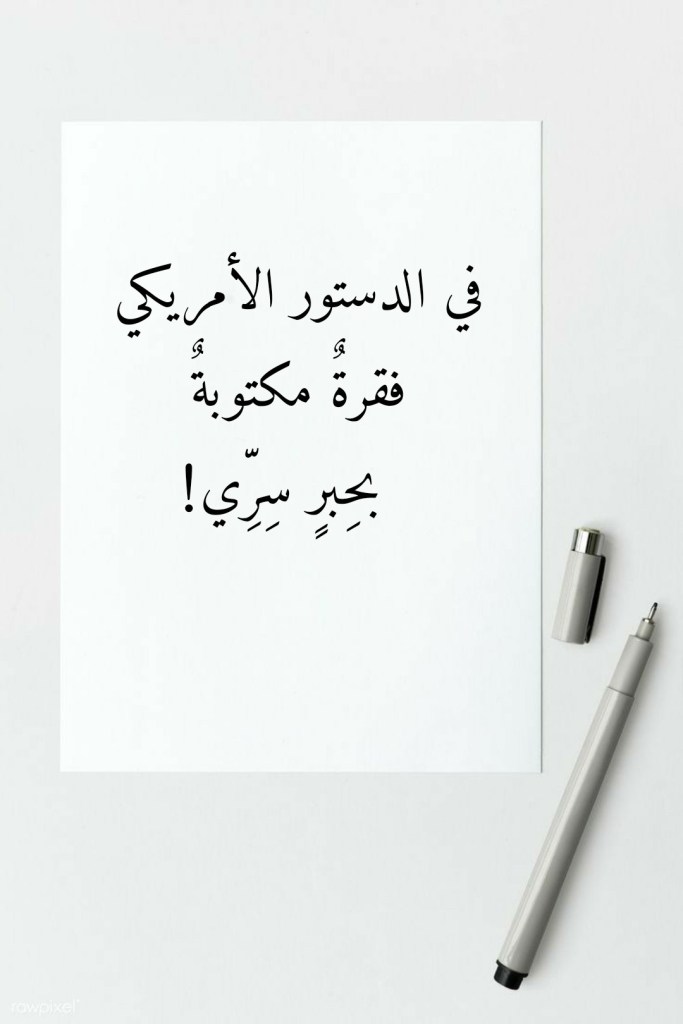 في الدستور الأمريكي
فقرةٌ مكتوبةٌ
بحِبرٍ سِرِّي!
rawpixel